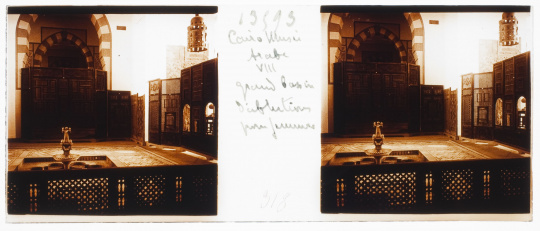 13593
Caire Musée
Arabe
VIII
grand bassin
D'ablutions
pour femmes
318